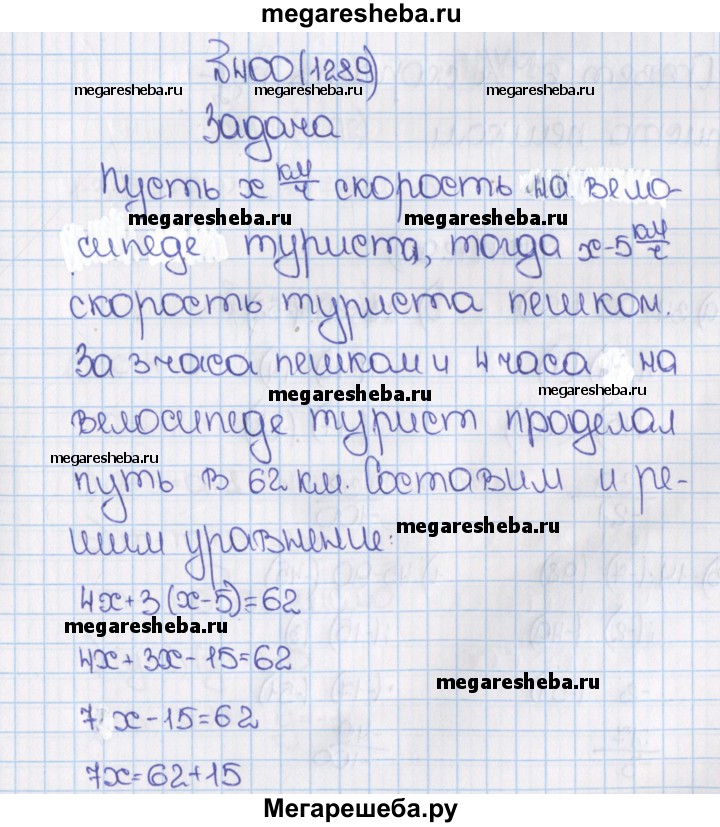 megaresheba.ru
№400(1289)
megaresheba.ru megaresheba.ru megaresheba.ru
Задача
Пусть x км/ч скорость на вело-
megaresheba.ru megaresheba.ru
сипеде туриста, тогда x-5 км/ч
скорость туриста пешком.
За 3 часа пешком и 4 часа на
megaresheba.ru megaresheba.ru
велосипеде турист проделал
megaresheba.ru
путь в 62 км. Составим и ре-
megaresheba.ru
шим уравнение:
4x+3(x-5)=62
megaresheba.ru
4x+3x-15=62
megaresheba.ru
7x-15=62
7x=62+15
Мегарешеба.ру